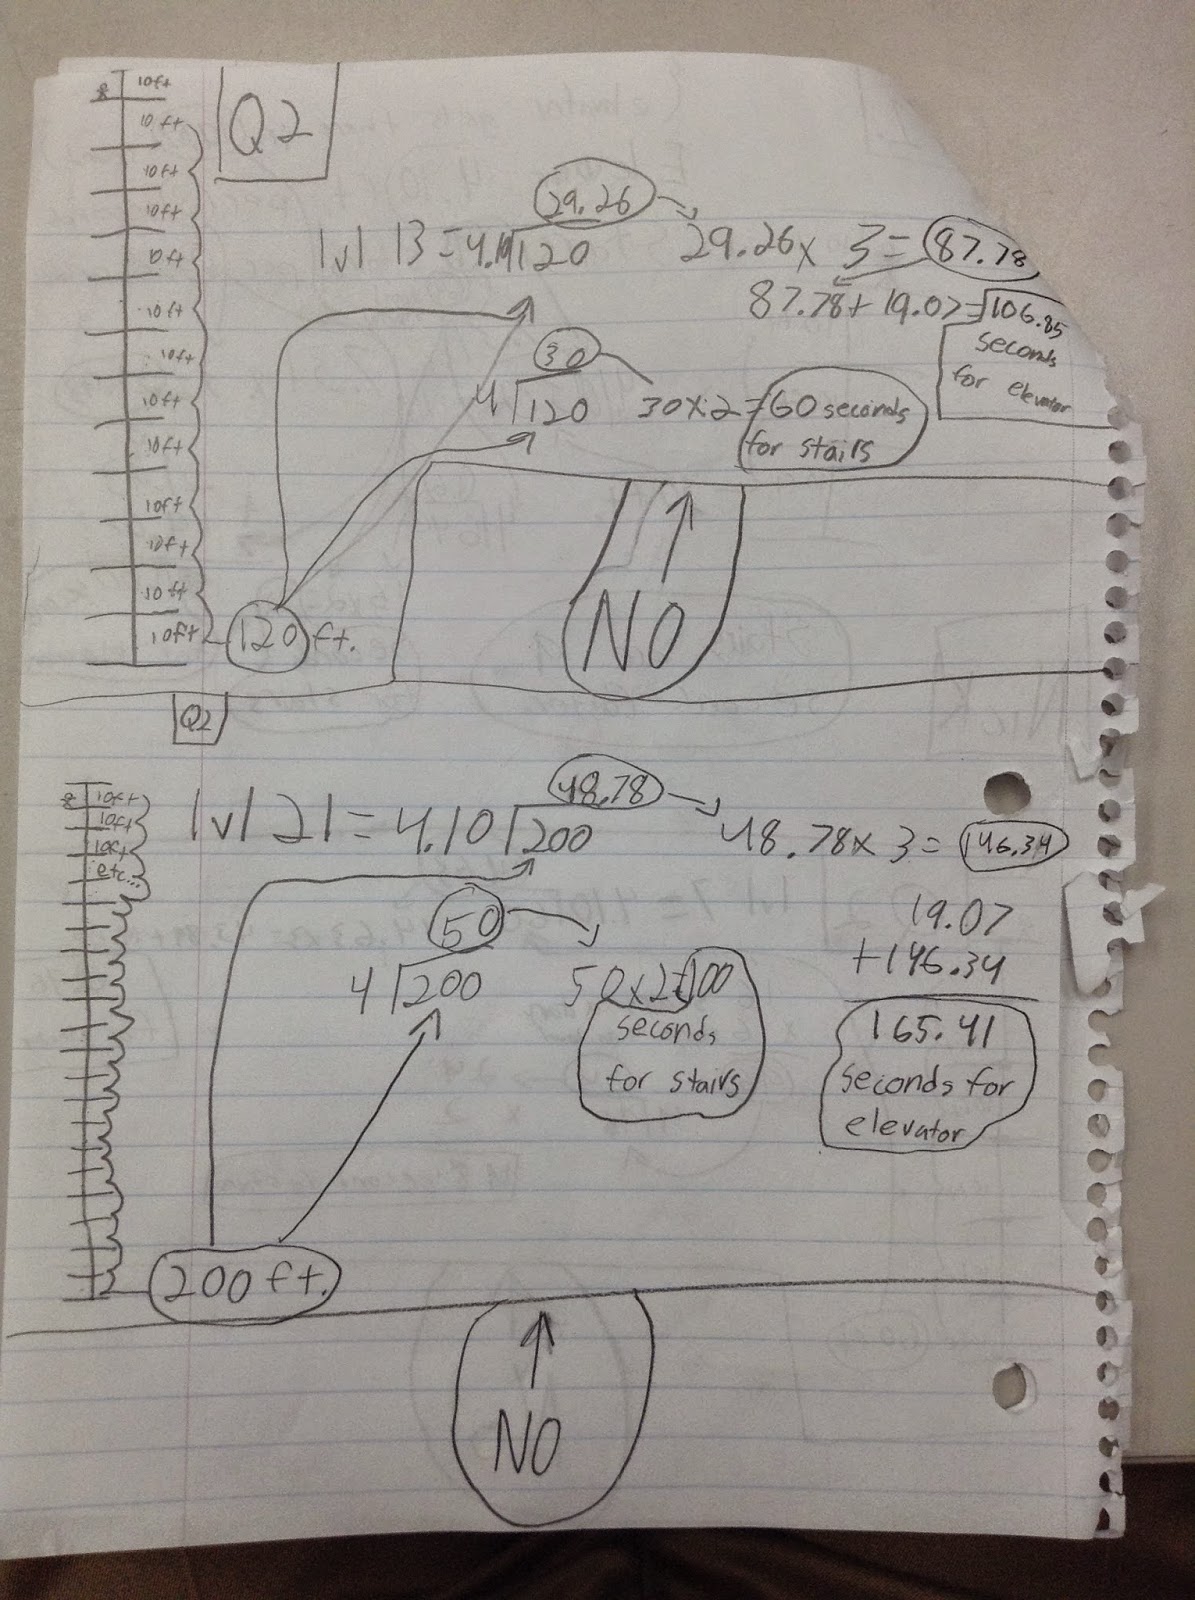 10ft
10ft
10ft
10ft
10ft
10ft
10ft
10ft
10ft
10ft
10ft
10ft
10ft
120 ft.
Q2
29.26
lvl 13 = 4.10 120
29.26 x 3 = 87.78
87.78 + 19.07 = 106.85
seconds
for elevator
30
4 120
30 x 2 = 60 seconds
for stairs
NO
Q2
10ft
10ft
10ft
etc...
48.78
lvl 21 = 4.10 200
48.78 x 3 = 146.34
50
4 200
50 x 2 = 100
seconds
for stairs
19.07
+146.34
165.41
seconds for
elevator
200 ft.
NO